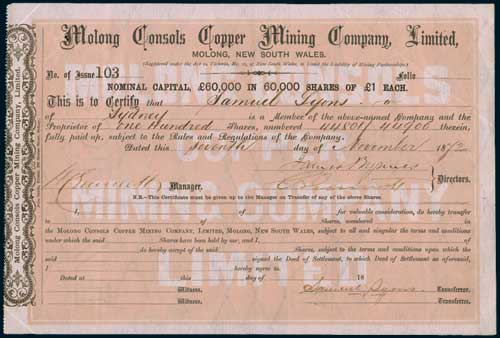 Molong Consols Copper Mining Company, Limited,
MOLONG, NEW SOUTH WALES.
(Registered under the Act 24 Victoria, No. 21, of New South Wales, to limit the Liability of Mining Partnerships.)
No. of Issue 103 Folio
NOMINAL CAPITAL, £60,000 IN 60,000 SHARES OF £1 EACH.
This is to Certify that Samuel Lyons
of Sydney is a Member of the above-named Company and the
Proprietor of One Hundred Shares, numbered 44801 44900 therein,
fully paid up, subject to the Rules and Regulations of the Company.
Dated this Seventh day of November 1872
James Byrnes
Manager. Directors.
N.B.—This Certificate must be given up to the Manager on Transfer of any of the above Shares
I, of for valuable consideration, do hereby transfer
to of Shares, numbered in
the MOLONG CONSOLS COPPER MINING COMPANY, LIMITED, MOLONG, NEW SOUTH WALES, subject to all and singular the terms and conditions
under which the said Shares have been held by me; and I, of
do hereby accept of the said Shares, subject to the terms and conditions upon which the
said signed the Deed of Settlement, to which Deed of Settlement as aforesaid,
I hereby agree to.
Dated at this day of 18
Witness. Samuel Lyons Transferror.
Witness. Transferree.
Molong Consols Copper Mining Company, Limited.
MOLONG CONSOLS
COPPER
MINING COMPANY
LIMITED